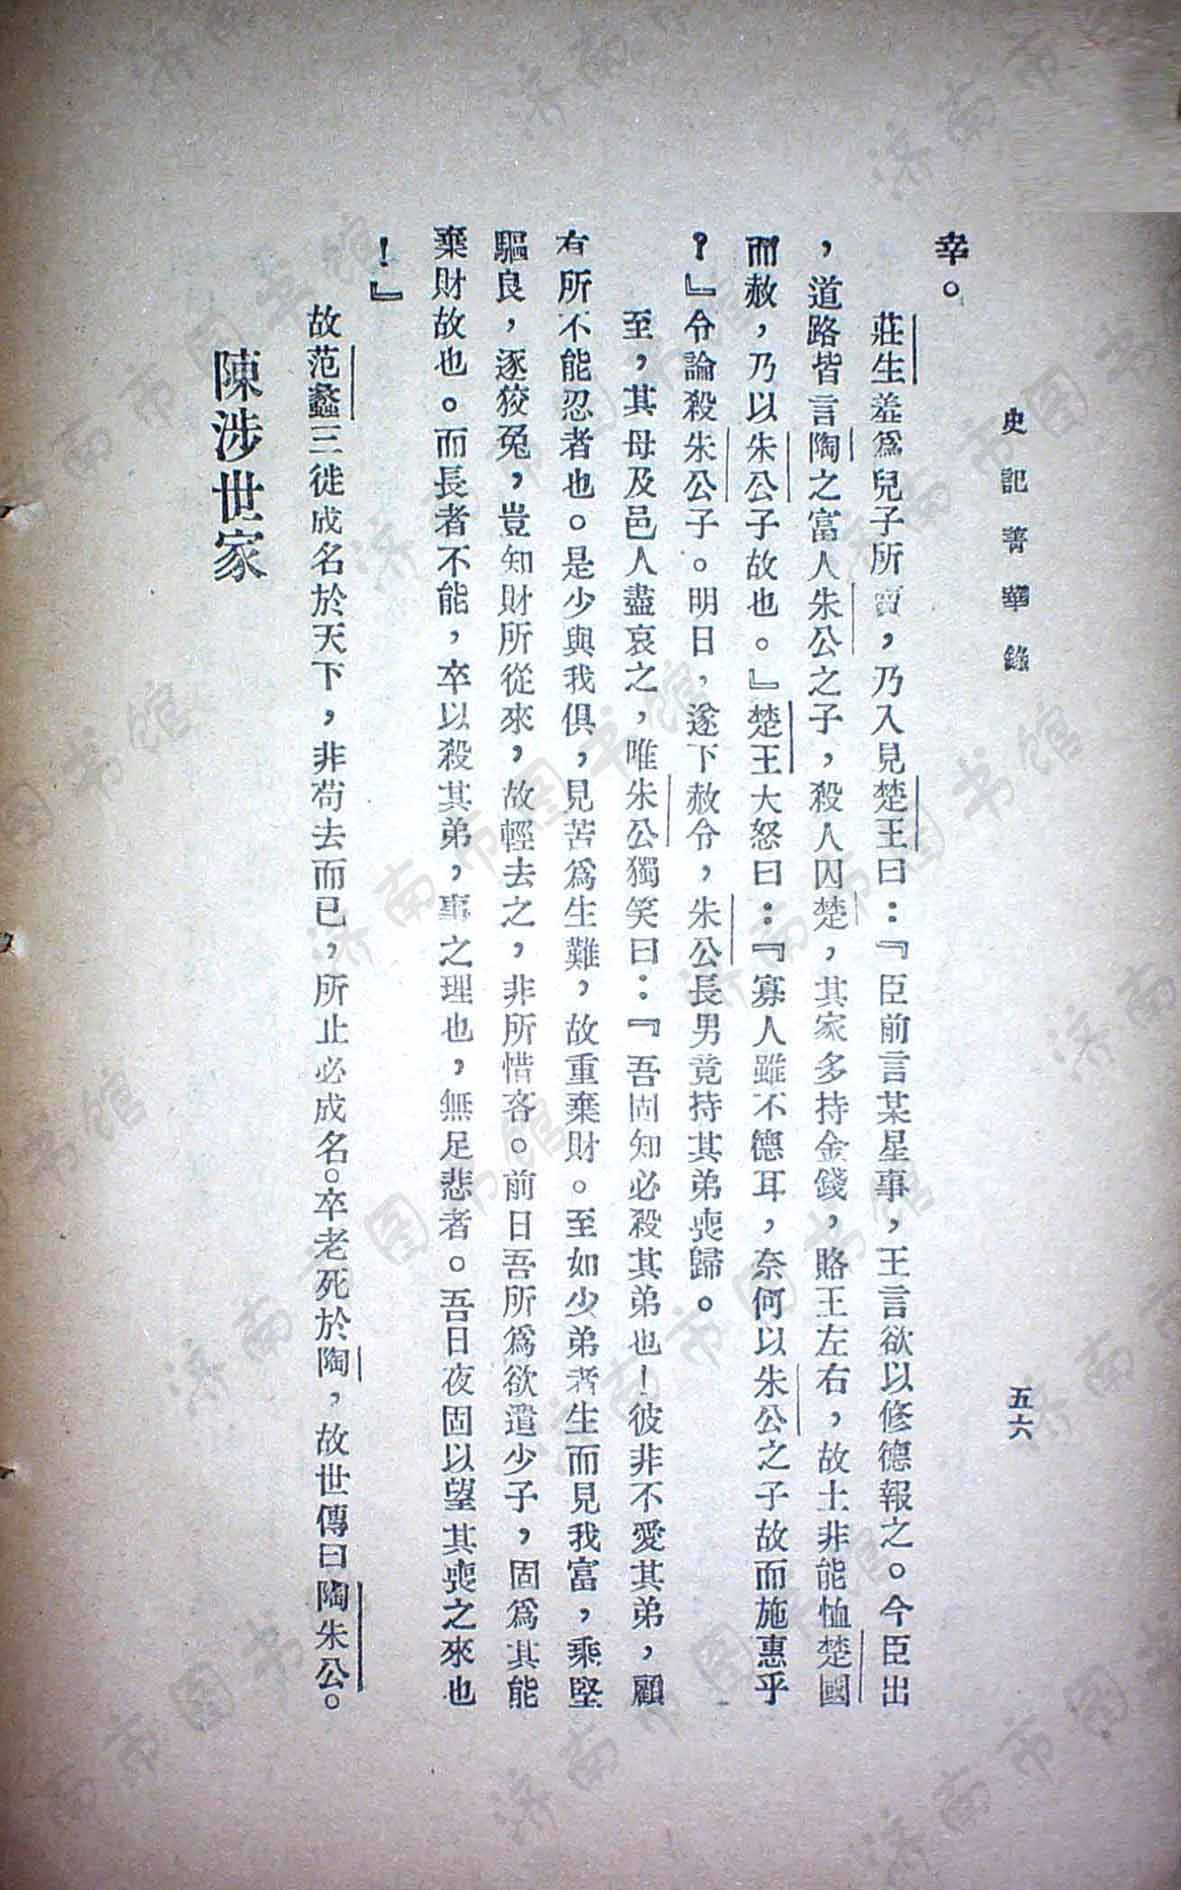 史記菁華錄
五六
幸。
莊生羞爲兒子所賣，乃入見楚王曰：『臣前言某星事，王言欲以修德報之。今臣出
，道路皆言陶之富人朱公之子，殺人囚楚，其家多持金錢，賂王左右，故士非能恤楚國
而赦，乃以朱公子故也。』楚王大怒曰：『寡人雖不德耳，奈何以朱公之子故而施惠乎
？』令論殺朱公子。明日，遂下赦令，朱公長男竟持其弟喪歸。
至，其母及邑人盡哀之，唯朱公獨笑曰：『吾固知必殺其弟也！彼非不愛其弟，顧
有所不能忍者也。是少與我俱，見苦爲生難，故重棄財。至如少弟者生而見我富，乘堅
驅良，逐狡兔，豈知財所從來，故輕去之，非所惜吝。前日吾所爲欲遣少子，固爲其能
棄財故也。而長者不能，卒以殺其弟，事之理也，無足悲者。吾日夜固以望其喪之來也
！』
故范蠡三徙成名於天下，非苟去而已，所止必成名。卒老死於陶，故世傳曰陶朱公。
陳涉世家
济南市图书馆